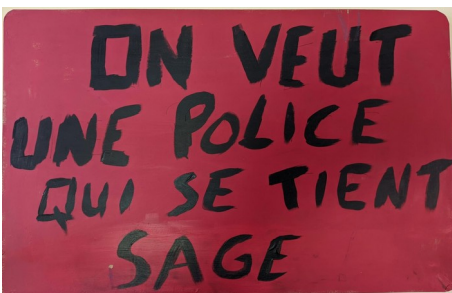 ON VEUT
UNE POLICE
QUI SE TIENT
SAGE